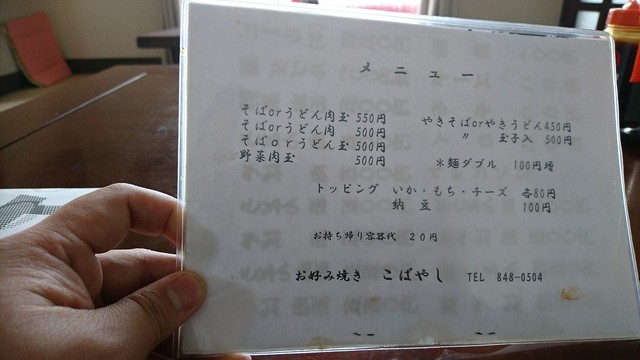 メニュー
そばorうどん肉玉 550円
そばorうどん肉 500円
そばorうどん玉 500円
野菜肉玉 500円
やきそばorやきうどん450円
〃 玉子入 500円
※麺ダブル 100円増
トッピング いか・もち・チーズ 各80円
納豆 100円
お持ち帰り容器代 20円
お好み焼き こばやし TEL 848-0504